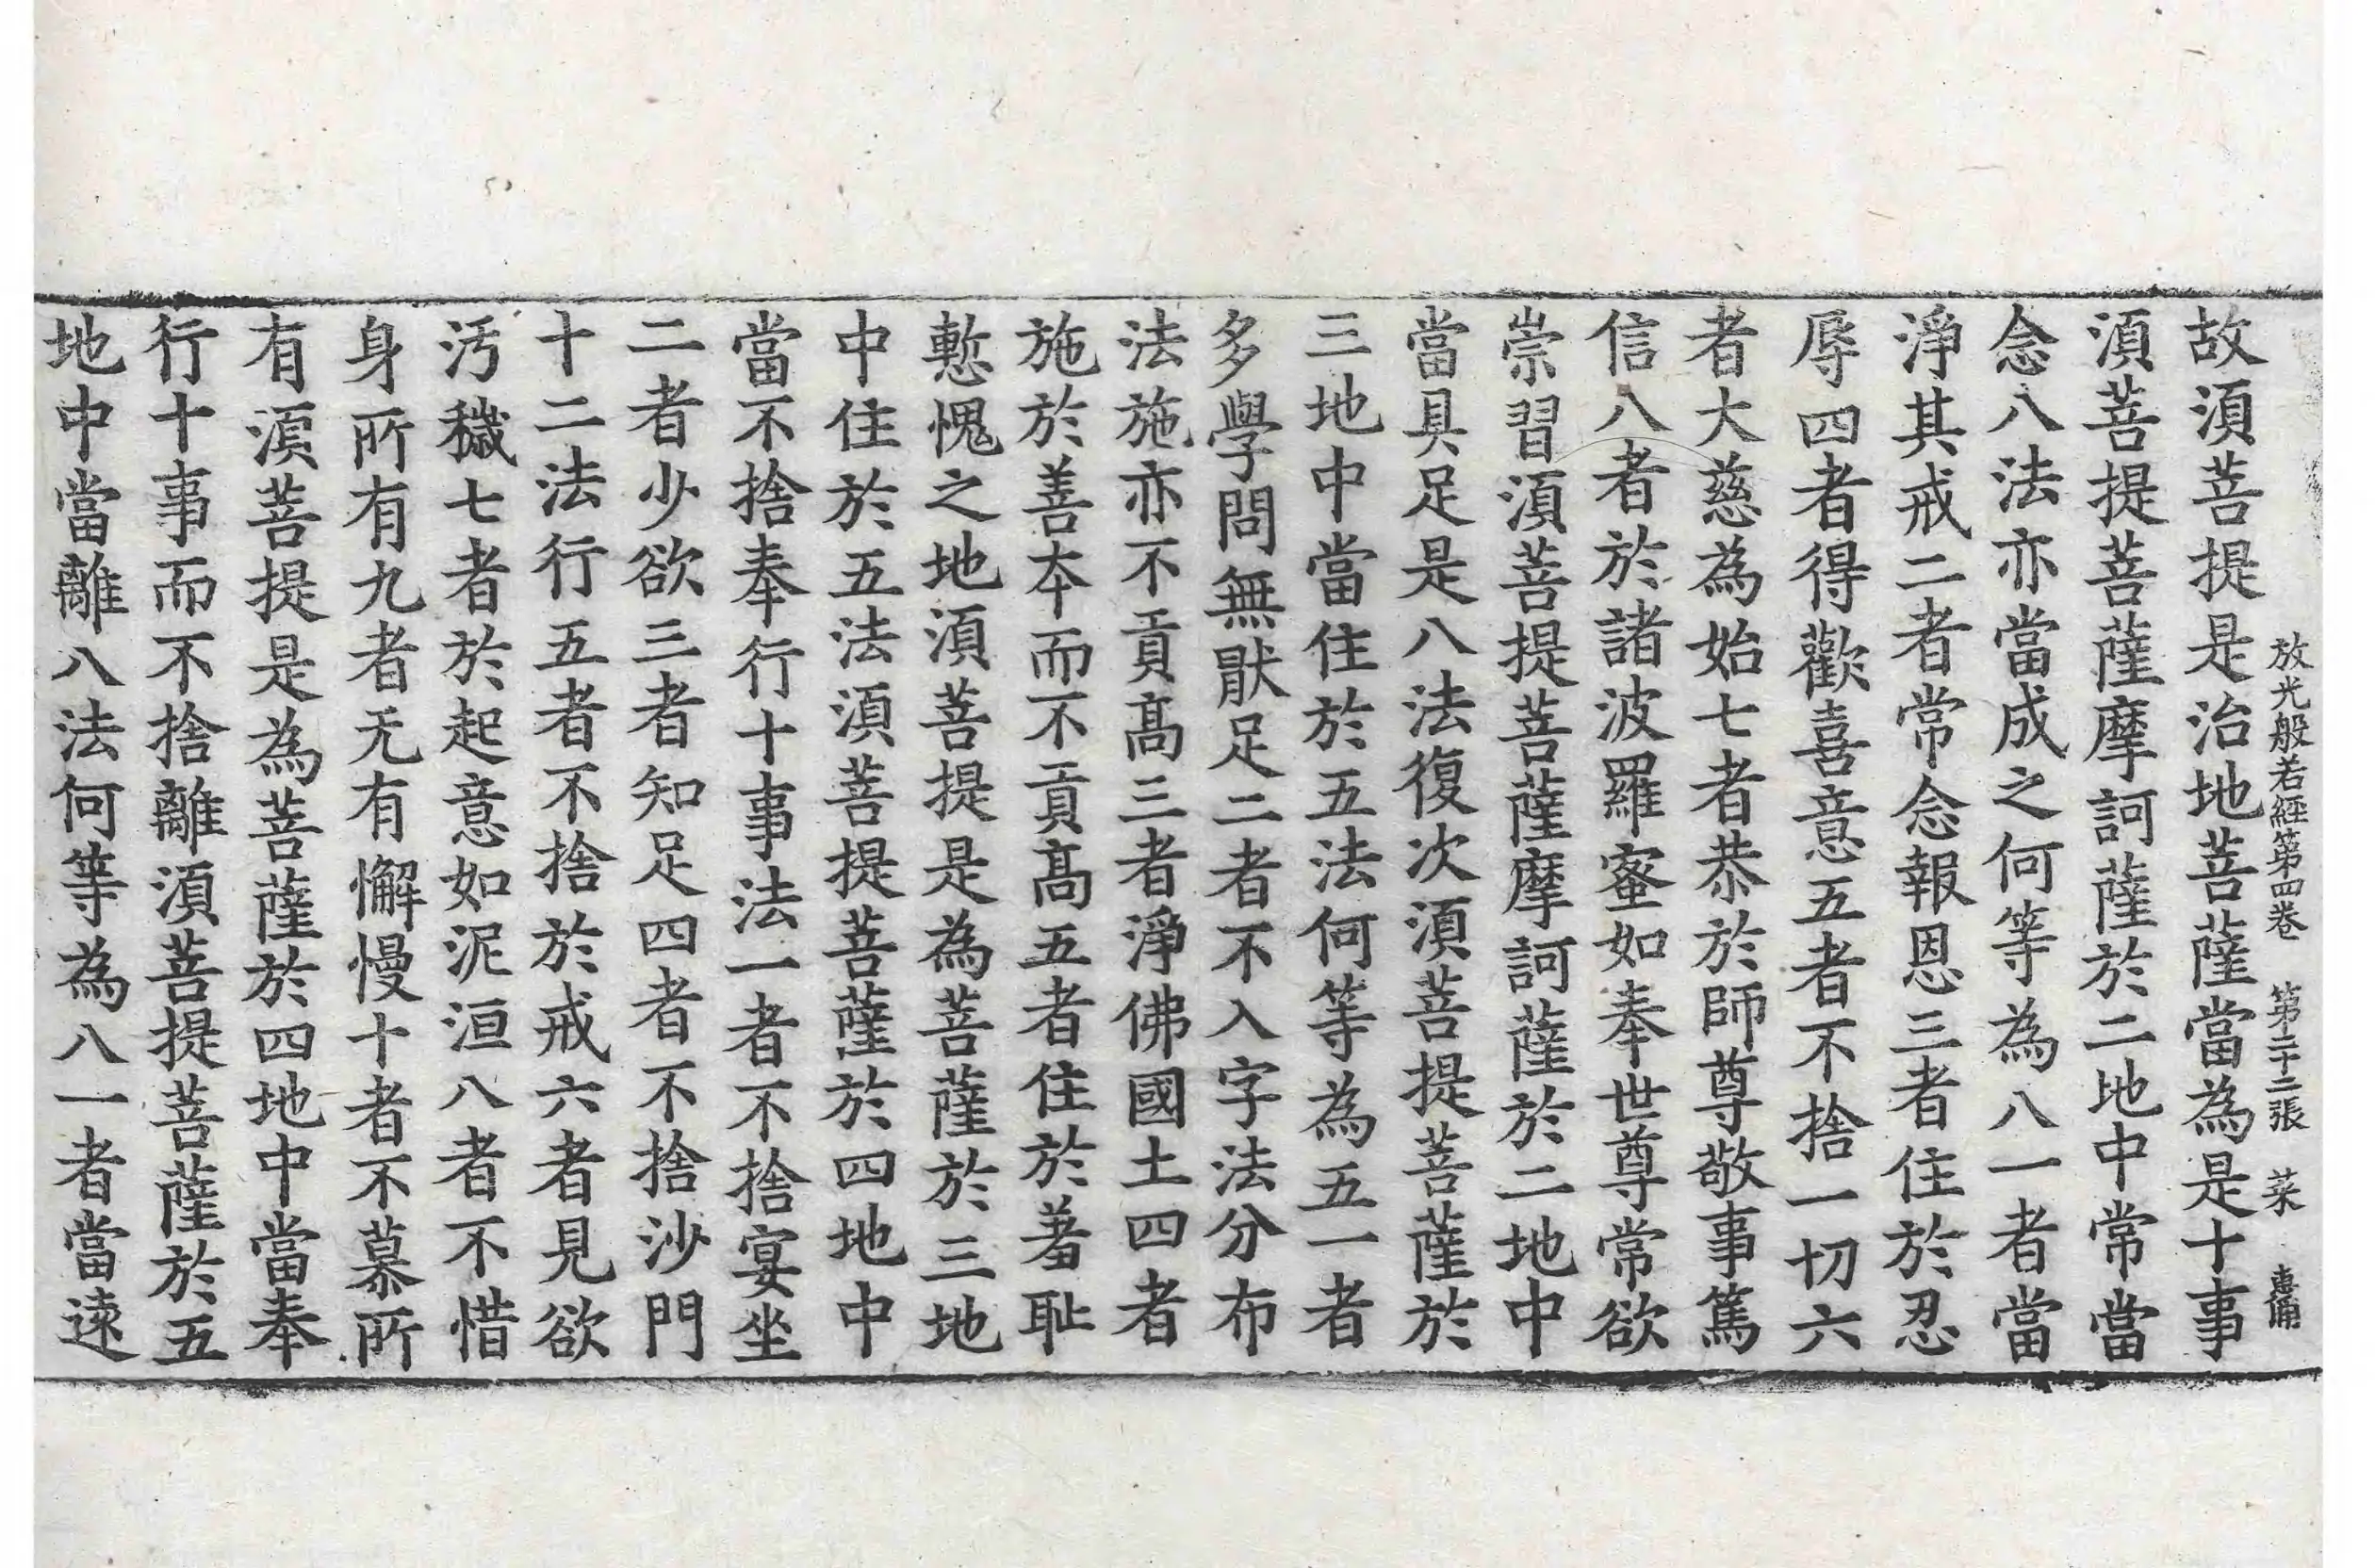 放光般若經第四卷 第二十二張 菜
故湏菩提是治地菩薩當為是十事
湏菩提菩薩摩訶薩於二地中常當
念八法亦當成之何等為八一者當
淨其戒二者常念報恩三者住於忍
辱四者得歡喜意五者不捨一切六
者大慈為始七者恭於師尊敬事篤
信八者於諸波羅蜜如奉世尊常欲
崇習湏菩提菩薩摩訶薩於二地中
當具足是八法復次湏菩提菩薩於
三地中當住於五法何等為五一者
多學問無猒足二者不入字法分布
法施亦不貢髙三者淨佛國土四者
施於善本而不貢髙五者住於羞耻
慙愧之地湏菩提是為菩薩於三地
中住於五法湏菩提菩薩於四地中
當不捨奉行十事法一者不捨宴坐
二者少欲三者知足四者不捨沙門
十二法行五者不捨於戒六者見欲
汚穢七者於起意如泥洹八者不惜
身所有九者无有懈慢十者不慕所
有湏菩提是為菩薩於四地中當奉
行十事而不捨離湏菩提菩薩於五
地中當離八法何等為八一者當遠